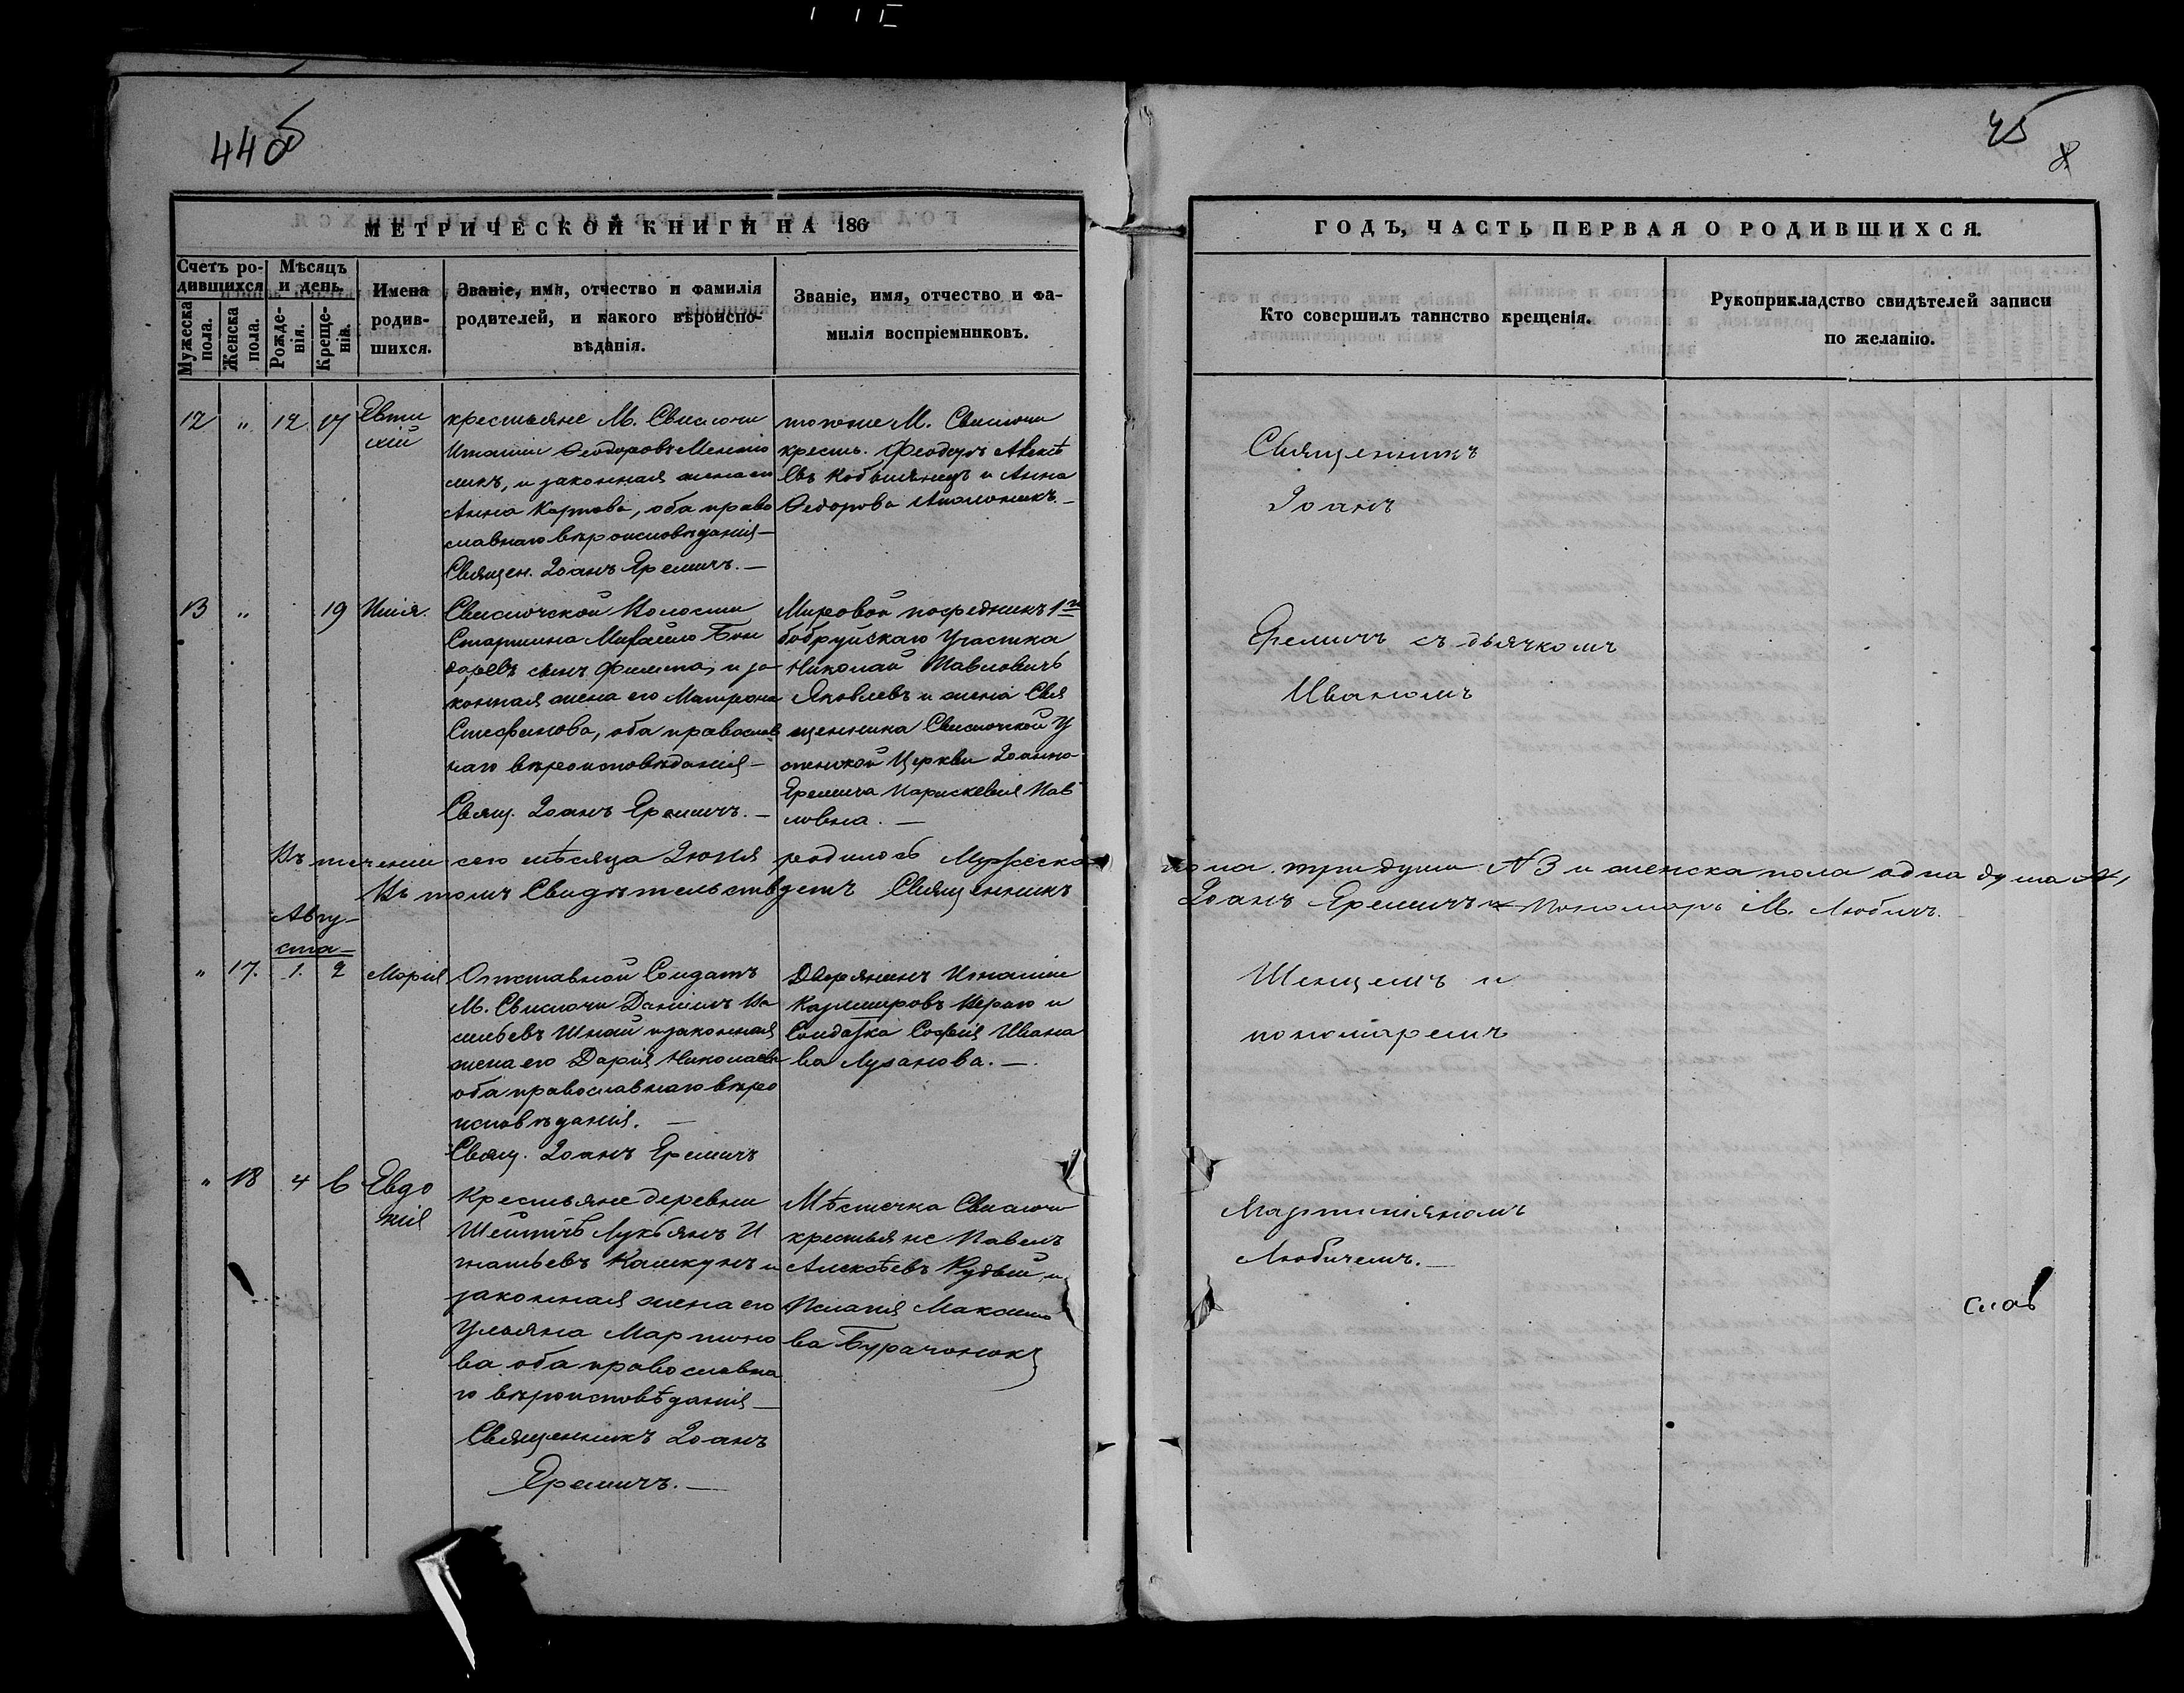 44об
МЕТРИЧЕСКОЙ КНИГИ НА 186
Счетъ ро-
дившихся
Мужеска пола.
Женска пола.
Мѣсяцъ
и день.
Рожде-
нія.
Креще-
нія.
Имена
родив-
шихся.
Званіе, имя, отчество и фамилія
родителей, и какого вѣроиспо-
вѣданія.
Званіе, имя, отчество и фа-
милія воспріемниковъ.
12 " 12 17 Евти
хій
крестьяне М. Свислочи
Игнатій Ѳеодоровъ
и законная жена его
Анна Карпова, оба право
славнаго вѣроисповѣданія —
Священ. Іоанъ Еремичъ. —
тогоже М. Свислочи
кресть. Феодоръ Алексѣ
евъ и Анна
Ѳедорова
13 " 19 Илія.
Свислочской Волости
Старшина Михаилъ
сынъ и за
конная жена его Матрона
Стефанова, оба православ
наго вѣроисповѣданія —
Свящ. Іоанъ Еремичъ. —
Мировой посредникъ 1го
бобруйскаго Участка
Николай Павловичъ
Яковлевъ и жена Свя
щенника Свислочской У
спенской Церкви Іоанна
Еремича Параскевія Пав
ловна. —
Въ теченіи сего мѣсяца Іюля родилось Мужеска
Въ томъ Свидѣтельствуетъ Священникъ
Авгу-
ста —
" 17. 1. 2 Марія
Отставной Солдатъ
М. Свислочи Даніилъ Ва
сильевъ и законная
жена его Дарія Николаева
оба православнаго вѣро
исповѣданія. —
Свящ. Іоанъ Еремичъ
Дворянинъ Игнатій
Казимировъ и
Солдатка Софія Ивано
ва Лузанова. —
" 18 4 6 Евдо
кія
Крестьяне деревни
Лукьянъ И
гнатьевъ и
законная жена его
Ульяна Мартино
ва оба православна
го вѣроисповѣданія —
Священникъ Іоанъ
Еремичъ. —
Мѣстечка Свислочи
крестьяне Павелъ
Алексѣевъ Рудый и
Пелагія Максимо
ва Бурачонокъ
45
8
ГОДЪ, ЧАСТЬ ПЕРВАЯ О РОДИВШИХСЯ.
Кто совершилъ таинство крещенія.
Рукоприкладство свидѣтелей записи
по желанію.
Священникъ
Іоанъ
Еремичъ съ дьячкомъ
Иваномъ
пола три души N 3 и женска пола одна душа N 1
Іоанъ Еремичъ Пономарь М. Любичъ.
Шенцемъ и
пономаремъ
Мартиніяномъ
Любичемъ. —